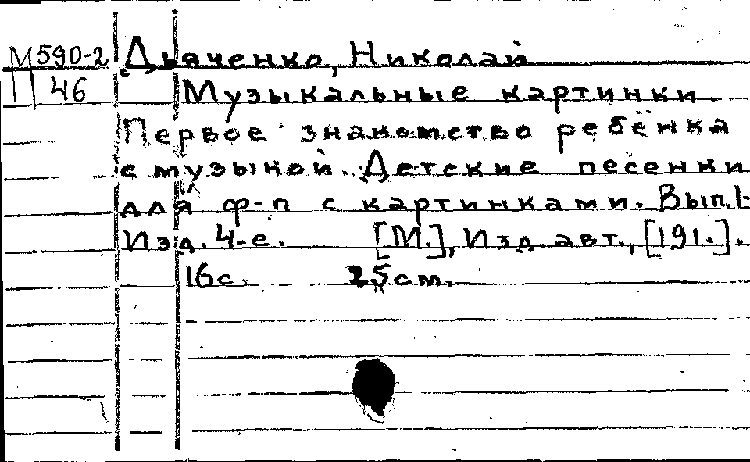 М590-2 Дьяченко, Николай
11 46 Музыкальные картинки.
Первое знакомство ребёнка
с музыкой. Детские песенки
для ф-п с картинками. Вып.1-
Изд. 4-е. [М.], Изд. авт., [191.].
16с. 25см.